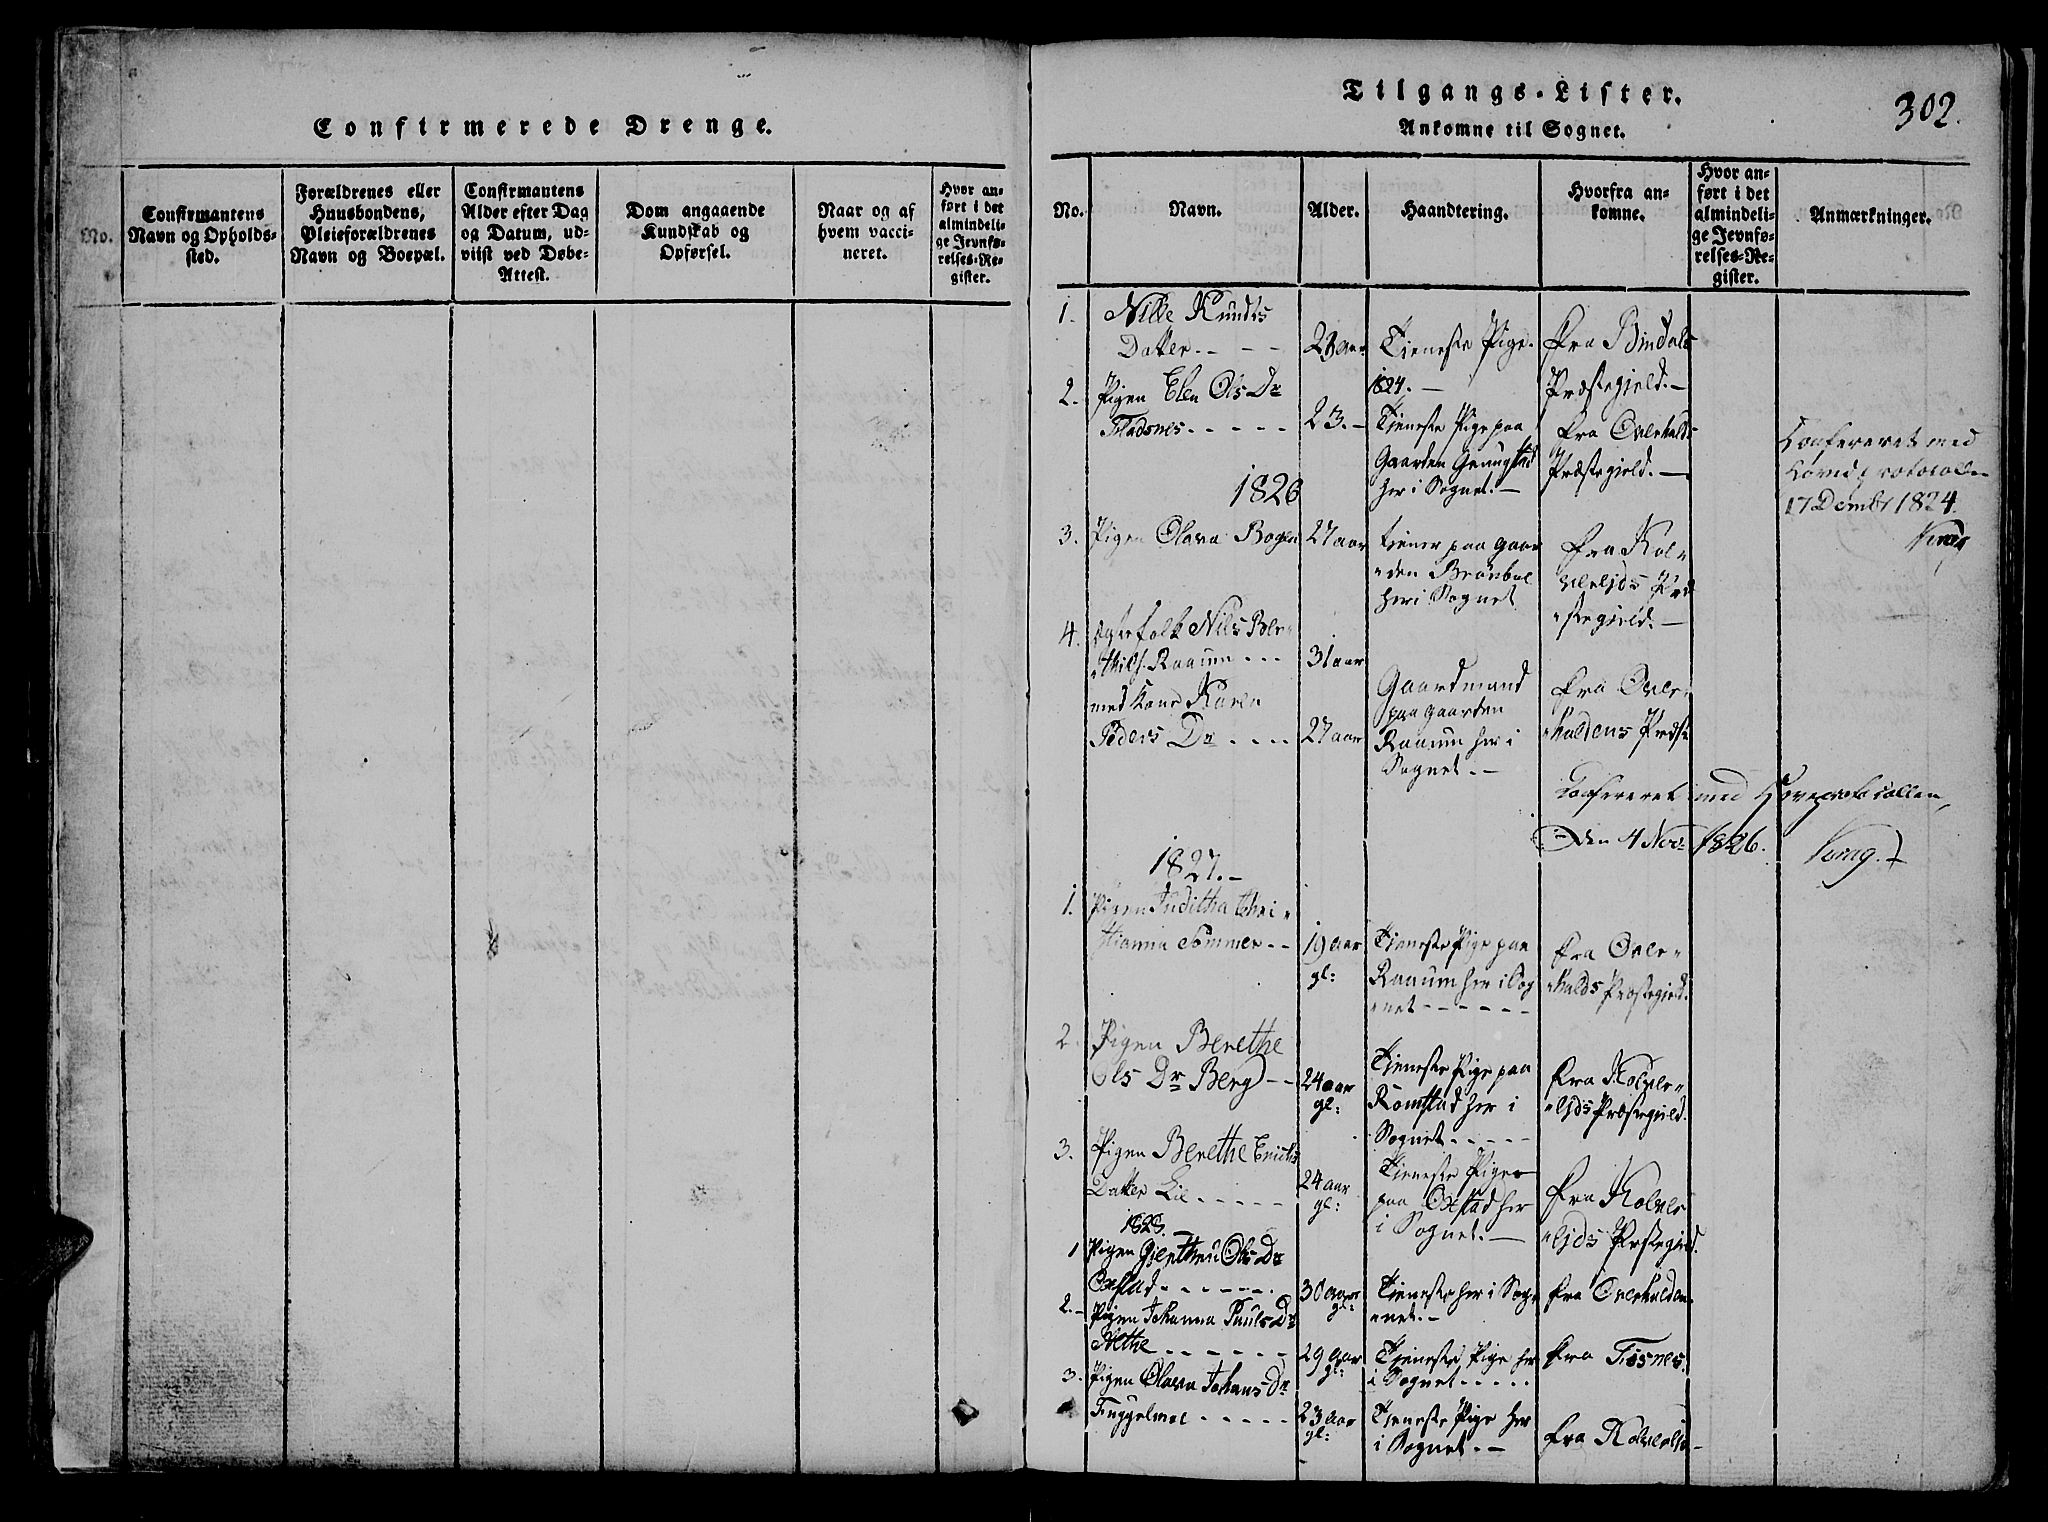 Confirmerede Drenge.
No.
Confirmantens
Navn og Opholds-
sted.
Forældrenes eller
Huusbondens,
Pleieforældrenes
Navn og Boepæl.
Confirmantens
Alder efter Dag
og Datum, ud-
viist ved Døbe-
Attest.
Dom angaaende
Kundskab og
Opførsel.
Naar og af
hvem vacci-
neret.
Hvor an-
ført i det
almindeli-
ge Jevnfø-
relses-Re-
gister.
Tilgangs-Lister.
Ankomne til Sognet.
302.
No.
Navn.
Alder.
Haandtering.
Hvorfra an-
komne.
Hvor an-
ført i det
almindeli-
ge Jevnfø-
relses-Re-
gister.
Anmærkninger.
1.
Nille Knuds
Datter. - - -
23 aar
Tieneste Pige.
1824. -
fra Bindals
Præstegield. -
2.
Pigen Elen Ols Dr
Fladsnes - - - - -
23. -
Tieneste Pige paa
Gaarden
her i Sognet. -
fra Overhalds
Præstegield. -
Confereret med
Hovedprotocollen
17 Decembr 1824.
1826
3.
Pigen Olava Bogen
27 aar
tiener paa gaar
den Brönbol
her i Sognet
fra Kol-
vereids Præ
stegield. -
4.
Ægtefolk Nils Ber-
thils. Raaum - - -
med Kone Karen
Peders Dr - - - -
31 aar
27 aar
Gaardmand
paa gaarden
Raaum her i
Sognet. -
fra Over-
haldens Præst
Confereret med Hovedprotocollen,
Den 4 Nov 1826.
1827. -
1.
Pigen Juditha Chri-
stianna Sommer - -
19 aar
gl:
Tieneste Pige paa
Raaum her i Sog
net - - - - - -
fra Over-
halds Præstegield.
2.
Pigen Berethe
Ols Dr Berg - -
24 aar
gl:
Tieneste Pige paa
Romstad her i
Sognet - - - - -
fra Kolver-
eids Præstegield.
3.
Pigen Berethe Erichs
Datter Lie - - - - -
24 aar
gl:
Tieneste Pige
paa Oxstad her
i Sognet. -
fra Kolver
eids Præstegield.
1828. -
1
Pigen Ols Dr
Oxstad - - - - - -
30 aar
gl:
Tieneste her i Sog
net. -
fra Overhalden
2. -
Pigen Johanna Pauls Dr
- - - - - -
29 aar
gl:
Tieneste Pige her
i Sognet - - - - -
fra Fosnes.
3.
Pigen Olava Johans Dr
- - - - -
23 aar
gl:
Tieneste Pige her
i Sognet. -
fra Kolvereid